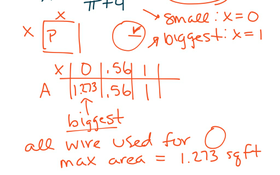 π+4
small: x=0
biggest: x=1
x
x P r
x 0 .56 1
A 1.273 .56 1
biggest
all wire used for
max area = 1.273 sqft